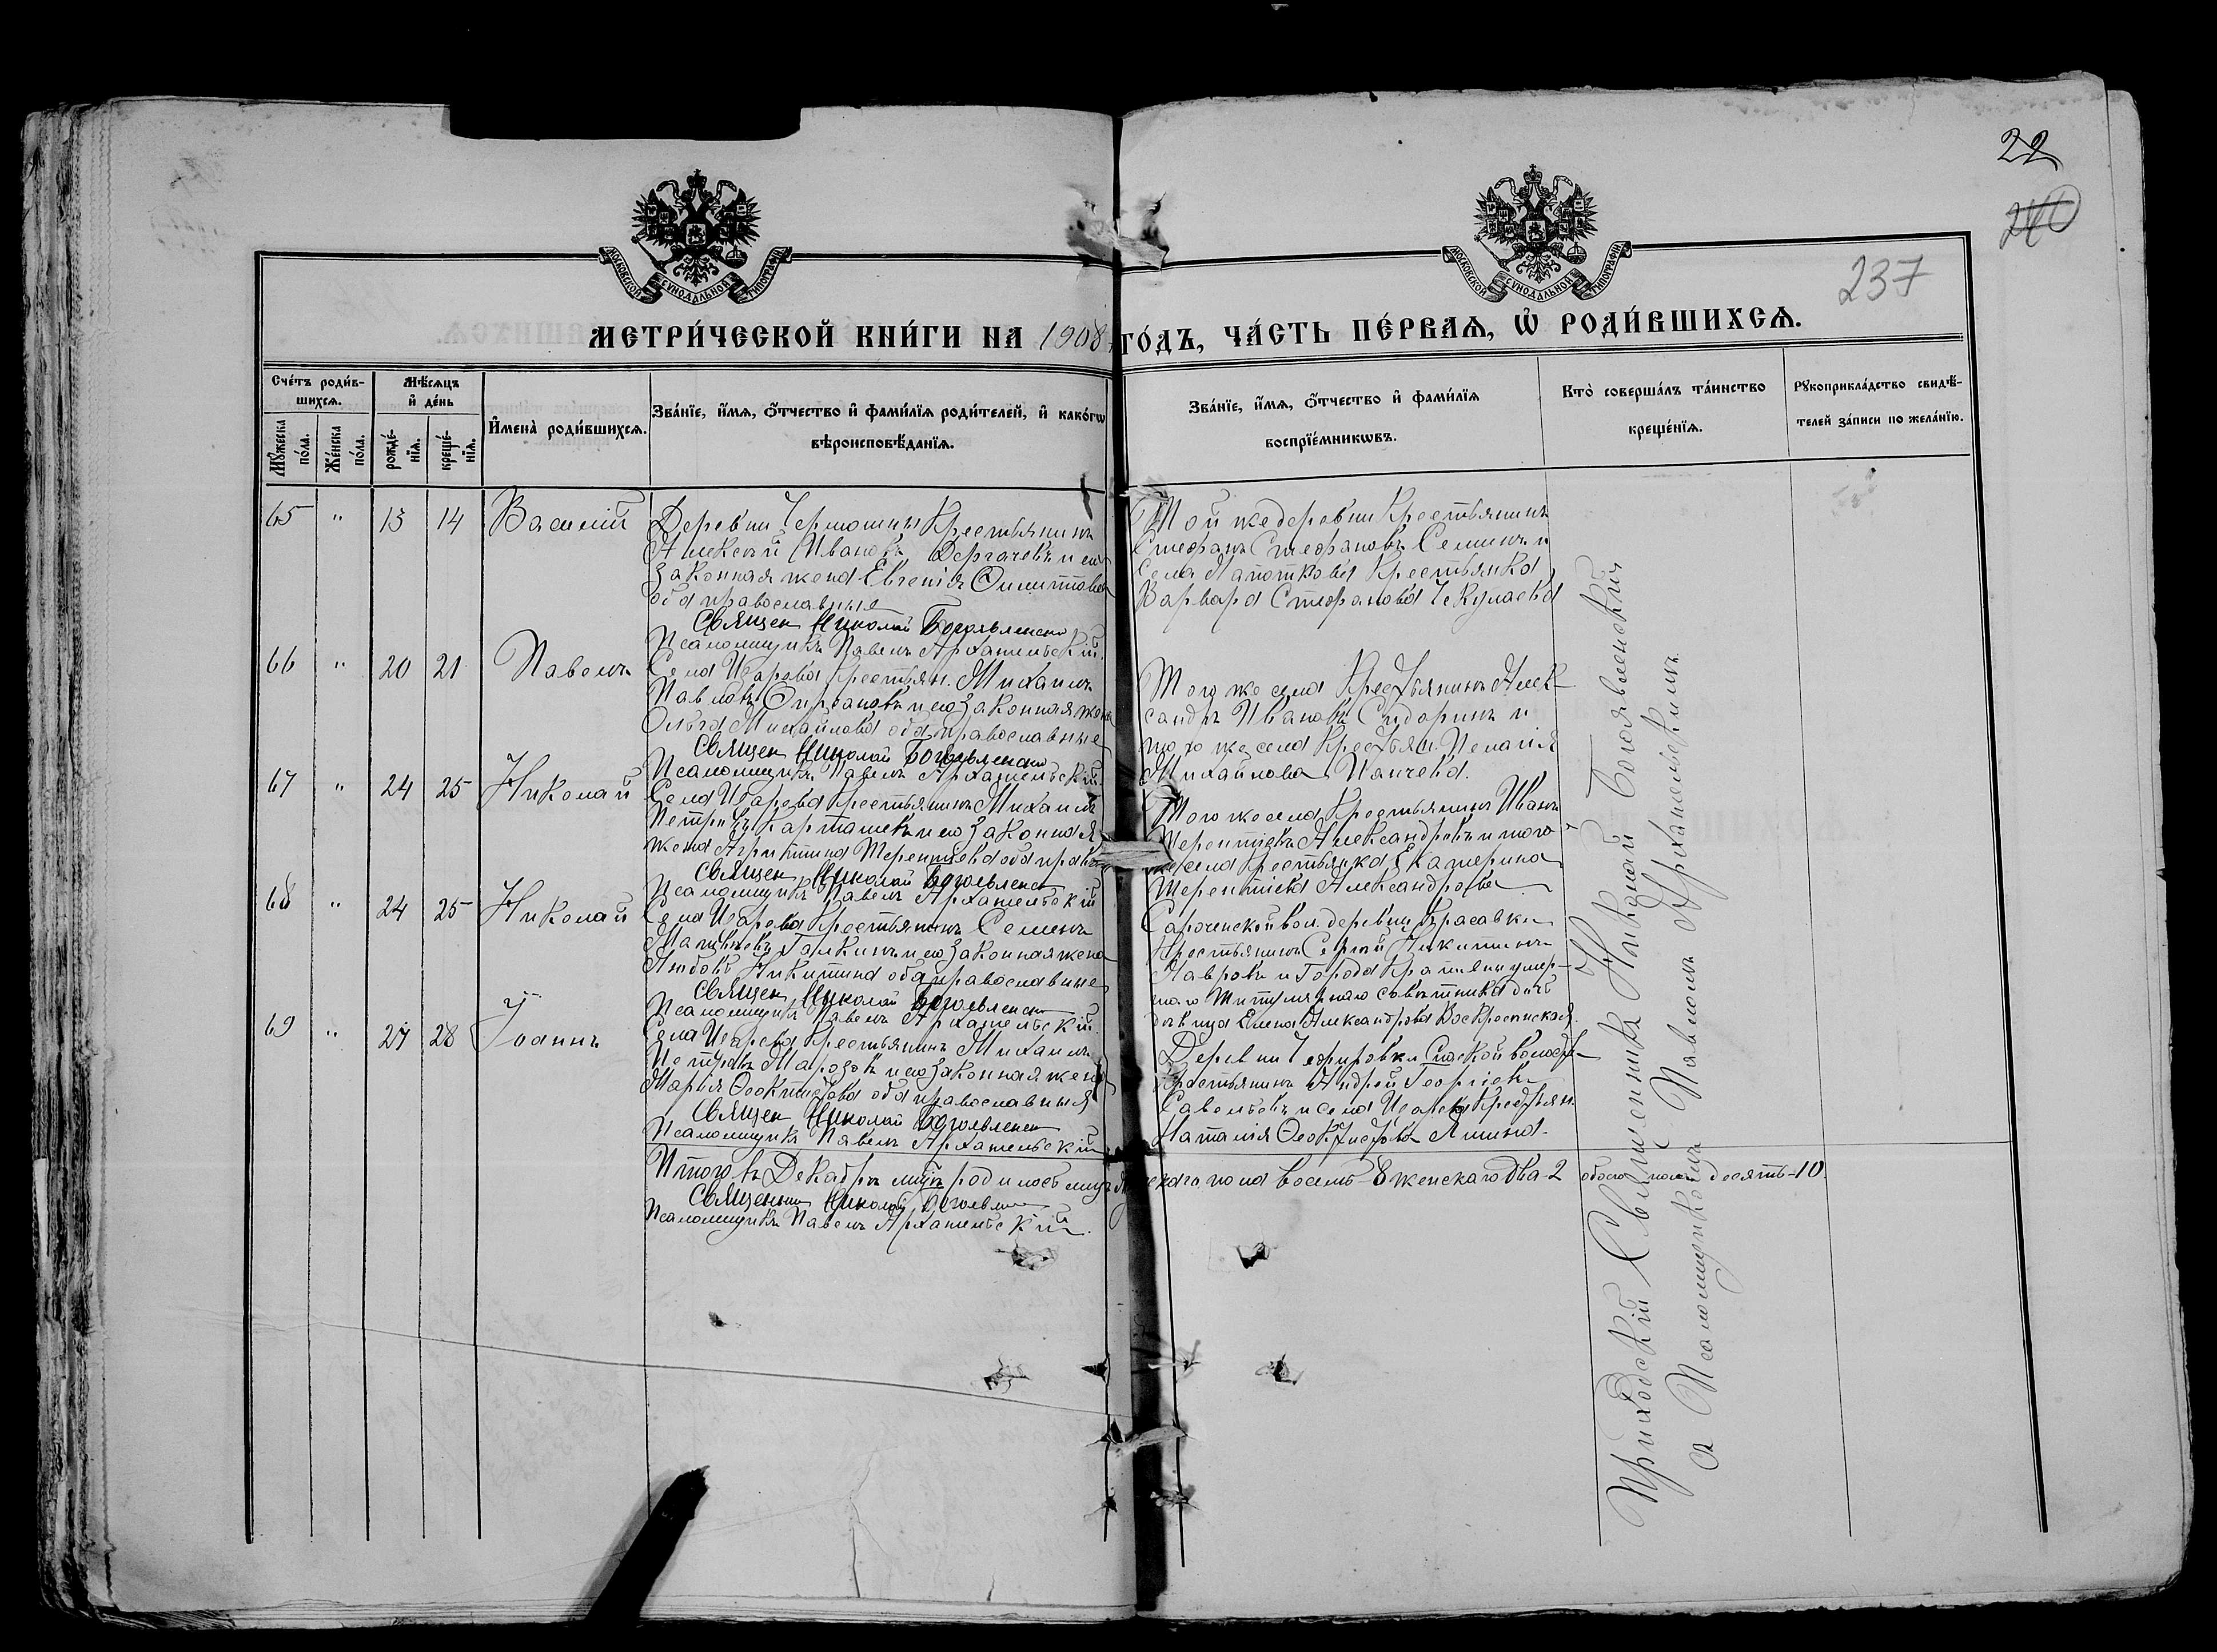 22
240
237
МОСКОВСКОЙ СУНОДАЛЬНОЙ ТИПОГРАФІИ
МОСКОВСКОЙ СУНОДАЛЬНОЙ ТИПОГРАФІИ
МЕТРИ́ЧЕСКОЙ КНИ́ГИ НА 1908 ГО́ДЪ, ЧА́СТЬ ПЕ́РВАѦ, Ѡ҆ РОДИ́ВШИХСѦ.
Сче́тъ роди́в-
шихсѧ.
Мꙋ́жеска по́ла.
Же́нска по́ла.
Мѣ́сѧцъ
и҆ де́нь
рожде́-
нїѧ.
креще́-
нїѧ.
И҆мена̀ роди́вшихсѧ.
Зва́нїе, и҆́мѧ, ѻ҆́тчество и҆ фами́лїѧ роди́телей, и҆ како́гѡ
вѣроисповѣ́данїѧ.
Зва́нїе, и҆́мѧ, ѻ҆́тчество и҆ фами́лїѧ
воспрїе́мникѡвъ.
Кто̀ соверша́лъ та́инство
креще́нїѧ.
Рꙋкоприкла́дство свидѣ́-
телей за́писи по жела́нїю.
65 " 13 14 Василій
Деревни Крестьянинъ
Алексѣй Ивановъ Дергачевъ и его
законная жена Евгенія Филиппова
оба православные
Священ Николай Богоявленскій
Псаломщикъ Павелъ Архангельскій
Той же деревни Крестьянинъ
Стефанъ Стефановъ Семинъ и
села Крестьянка
Варвара Стефанова Чекулаева
66 " 20 21 Павелъ
Села Уварова Крестьян. Михаилъ
Павловъ и его законная жена
Ольга Михайлова оба православные
Священ Николай Богоявленскій
Псаломщикъ Павелъ Архангельскій
Того же села Крестьянинъ Алек-
сандръ Ивановъ Сидоринъ и
того же села Крестьян. Пелагія
Михайлова
67 " 24 25 Николай
Села Уварова Крестьянинъ Михаилъ
Петровъ Карташевъ и его законная
жена Агриппина Терентіева оба правосл
Священ Николай Богоявленск
Псаломщикъ Павелъ Архангельскій
Того же села Крестьянинъ Иванъ
Терентіевъ Александровъ и того
же села Крестьянка Екатерина
Терентіева Александрова
68 " 24 25 Николай
Села Уварова Крестьянинъ Семенъ
Матвѣевъ Галкинъ и его законная жена
Любовь Никитина оба православные
Священ Николай Богоявленск
Псаломщикъ Павелъ Архангельскій
вол. деревни Красавки
Крестьянинъ Сергѣй Никитинъ
Лавровъ и Города умер-
шаго Титулярнаго совѣтника дочь
дѣвица Елена Александрова Воскресенская
69 " 27 28 Іоаннъ
Села Уварова Крестьянинъ Михаилъ
Петровъ Марозовъ и его законная жена
Марія Ѳеоктистова оба православныя
Священ Николай Богоявленск
Псаломщикъ Павелъ Архангельскій
Деревни Спаской волости
Крестьянинъ Андрей Георгіевъ
Савельевъ и села Уварова Крестьян.
Наталія Ѳеоктистова
Приходскій Священникъ Николай Богоявленскій
съ Псаломщикомъ Павломъ Архангельскимъ.
Итого въ Декабрѣ мцѣ родилось мужскаго пола восемь-8 женскаго два-2 обоего пола десять-10.
Священникъ Николай Богоявлен
Псаломщикъ Павелъ Архангельскій.